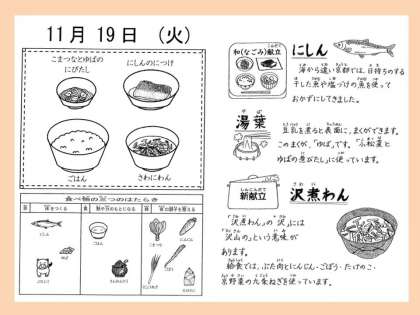 11月19日 (火)
こまつなとゆばの
にびたし
にしんのにつけ
ごはん
さわにわん
食べ物の三つのはたらき
にしん
ゆば
ぶたにく
ごはん
こまつな
にんじん
ごぼう
たけのこ
和(なごみ)献立
にしん
海から遠い京都では、日持ちのする
干した魚や塩づけの魚を使って
おかずにしてきました。
湯葉
ゆば
豆乳を煮ると表面に、まくができます。
このまくが、「ゆば」です。「小松菜と
ゆばの煮びたし」に使っています。
新献立
しんこんだて
沢煮わん
さわに
「沢煮わん」の「沢」には
「沢山の」という意味が
あります。
給食では、ぶた肉とにんじん・ごぼう・たけのこ・
京野菜の九条ねぎを使っています。